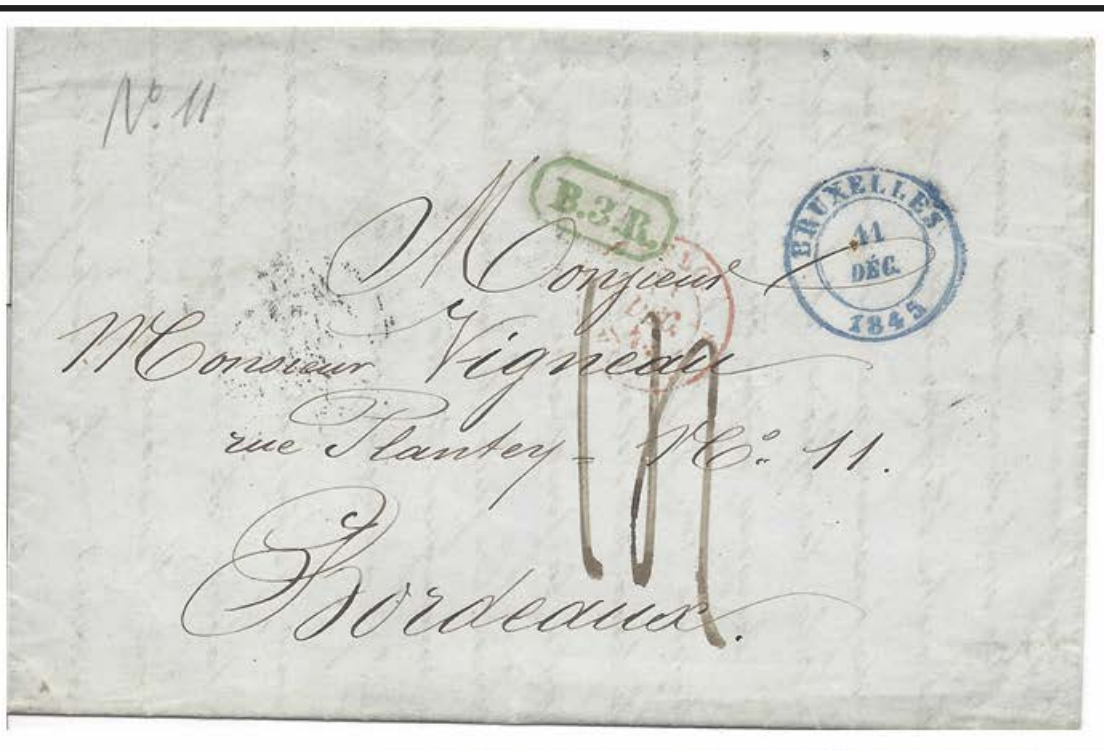 Nº 11
B.3.R.
BRUXELLES
11
DÉC.
1845
Monsieur
Monsieur Vigneau
rue Plantey = Nº. 11.
Bordeaux.